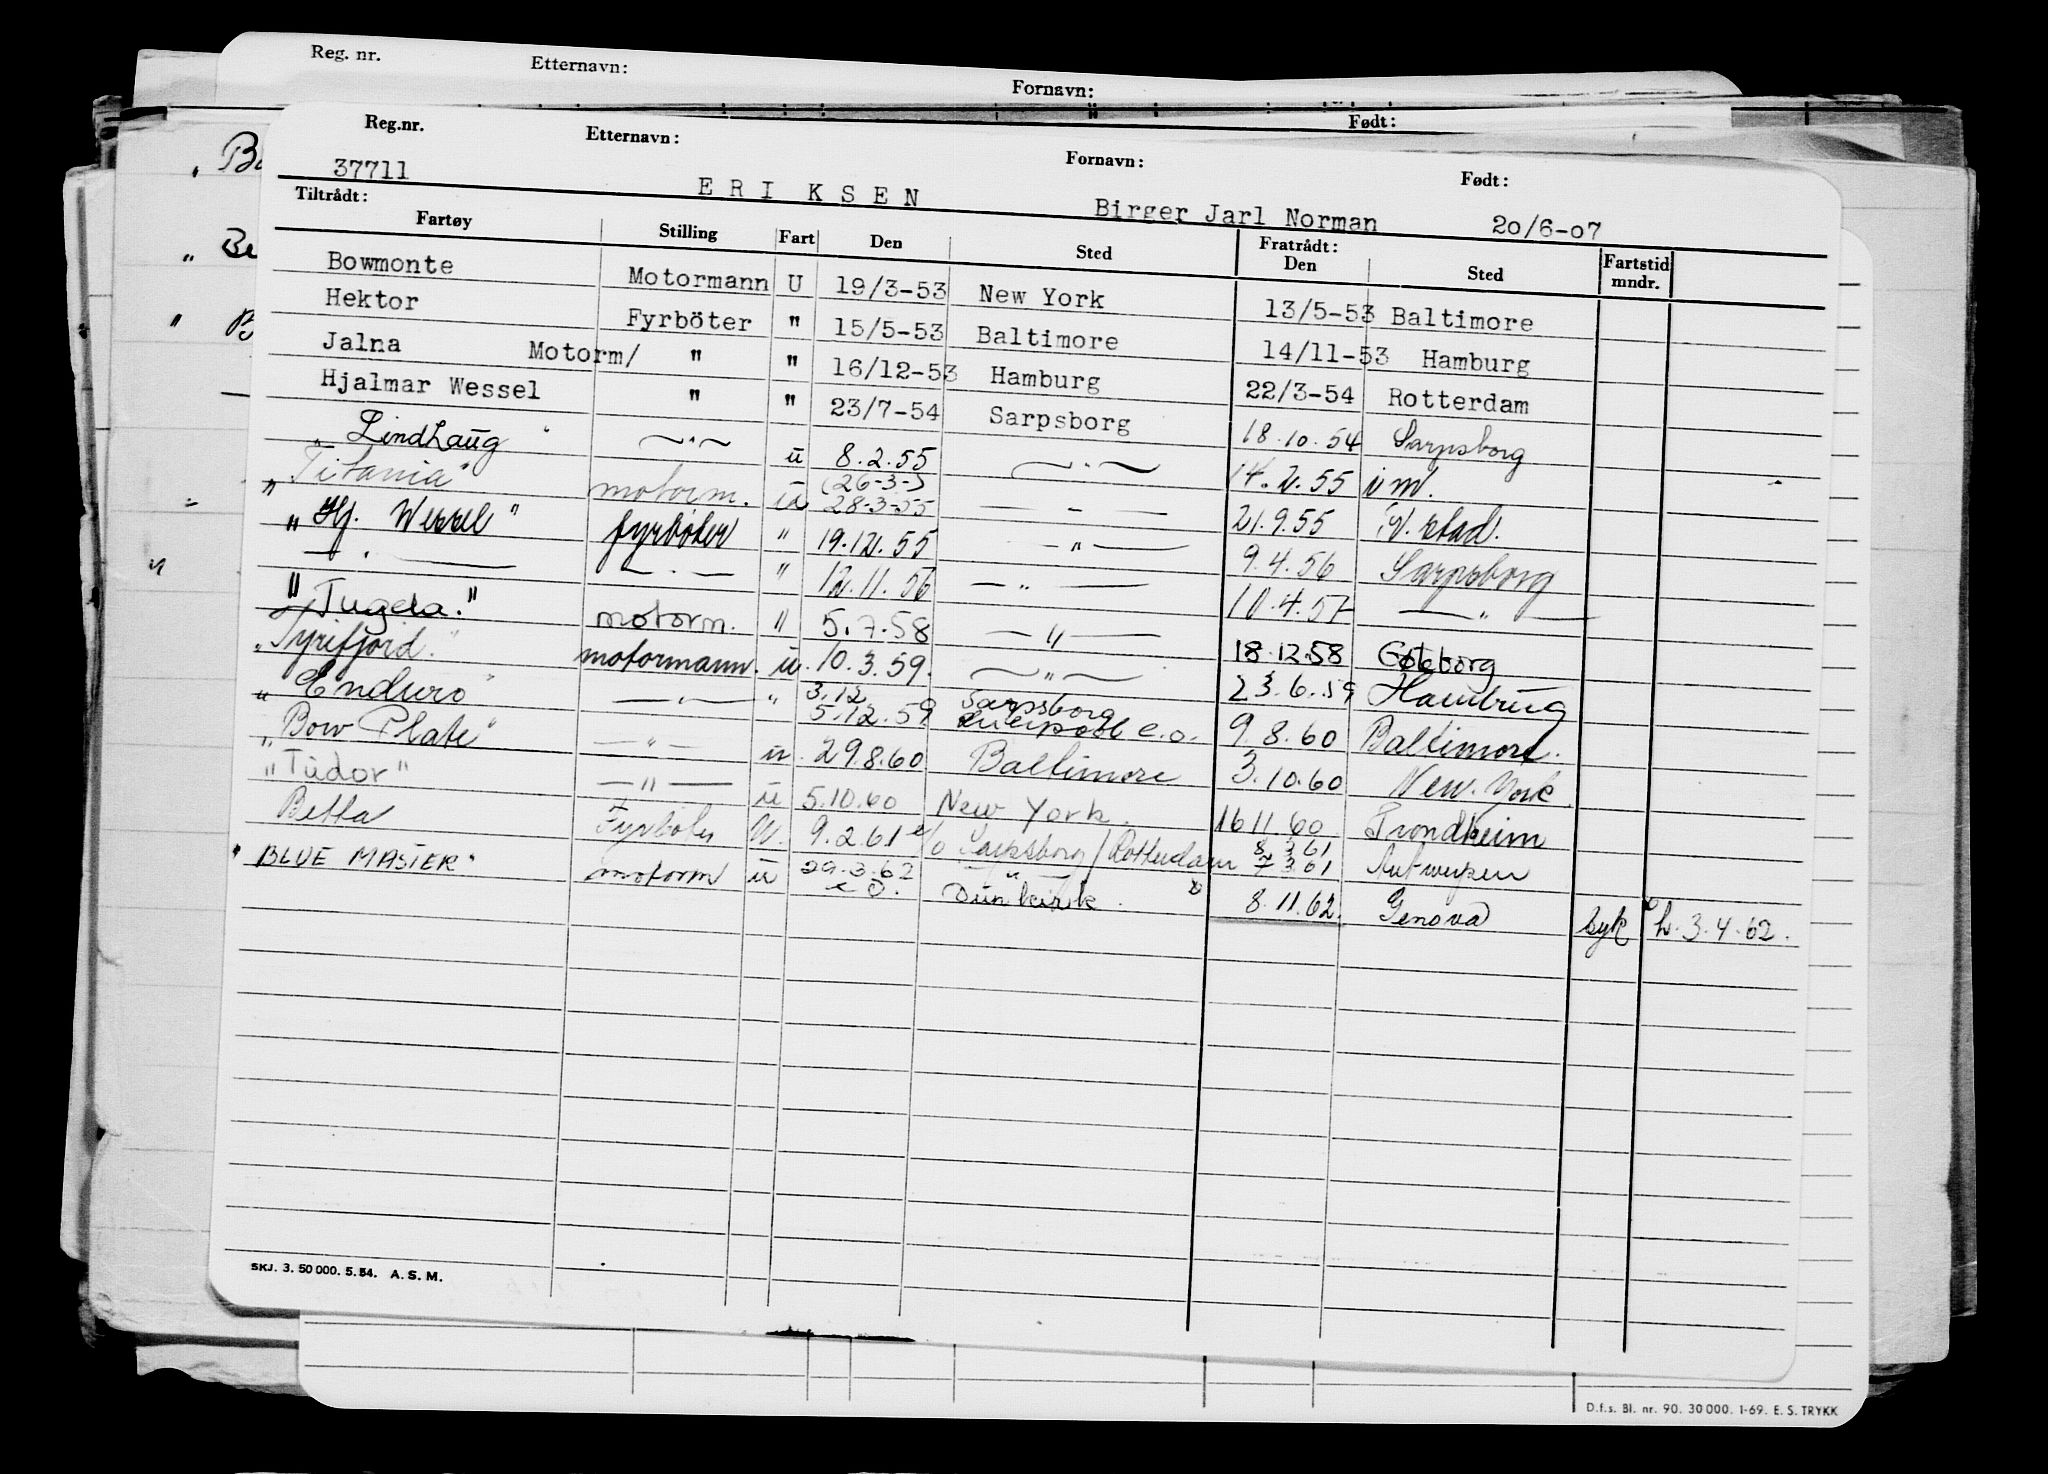 Reg. nr. Etternavn: Fornavn:
Født:
Reg.nr. Etternavn: Fornavn: Født:
37711 ERIKSEN Birger Jarl Norman 20/6-07
Tiltrådt: Fratrådt:
Fartøy Stilling Fart Den Sted Den Sted Fartstid mndr.
Bowmonte Motormann U 19/3-53 New York 13/5-53 Baltimore
Hektor Fyrböter " 15/5-53 Baltimore 14/11-53 Hamburg
Jalna Motorm/ " " 16/12-53 Hamburg 22/3-54 Rotterdam
Hjalmar Wessel " " 23/7-54 Sarpsborg 18.10.54 Sarpsborg
"Lindhaug" —"— u 8.2.55 —"— 14.2.55 i m.
"Titania" motorm. u (26-3-) 28-3-55 — - — 21.9.55 Fr. stad.
"Hj. Wessel" fyrbøter " 19.12.55 —"— 9.4.56 Sarpsborg
—"— —"— " 12.11.56 —"— 10.4.57 —"—
"Tugela." motorm. " 5.7.58 —"— 18.12.58 Gøteborg
"Tyrifjord." motormann. u. 10.3.59. —"— 23.6.59 Hamburg
"Enduro" —"— " 3.12 5.12.59 Sarpsborg Liverpool e.o. 9.8.60 Baltimore.
"Bow Plate" —"— u. 29.8.60 Baltimore 3.10.60 New. York
"Tudor" —"— u 5.10.60 New York. 16 11.60 Trondheim
Betta Fyrbøter U. 9.2.61 e/o Sarpsborg/Rotterdam 8.3.61 7 3.61 Antwerpen
"BLUE MASTER" motorm u 29.3.62 e o. —"— Dunkirk. 8.11.62. Genova syk h. 3.4.62.
SKJ. 3. 50 000. 5. 54. A. S. M.
D.f.s. Bl. nr. 90. 30 000. 1-69. E. S. TRYKK